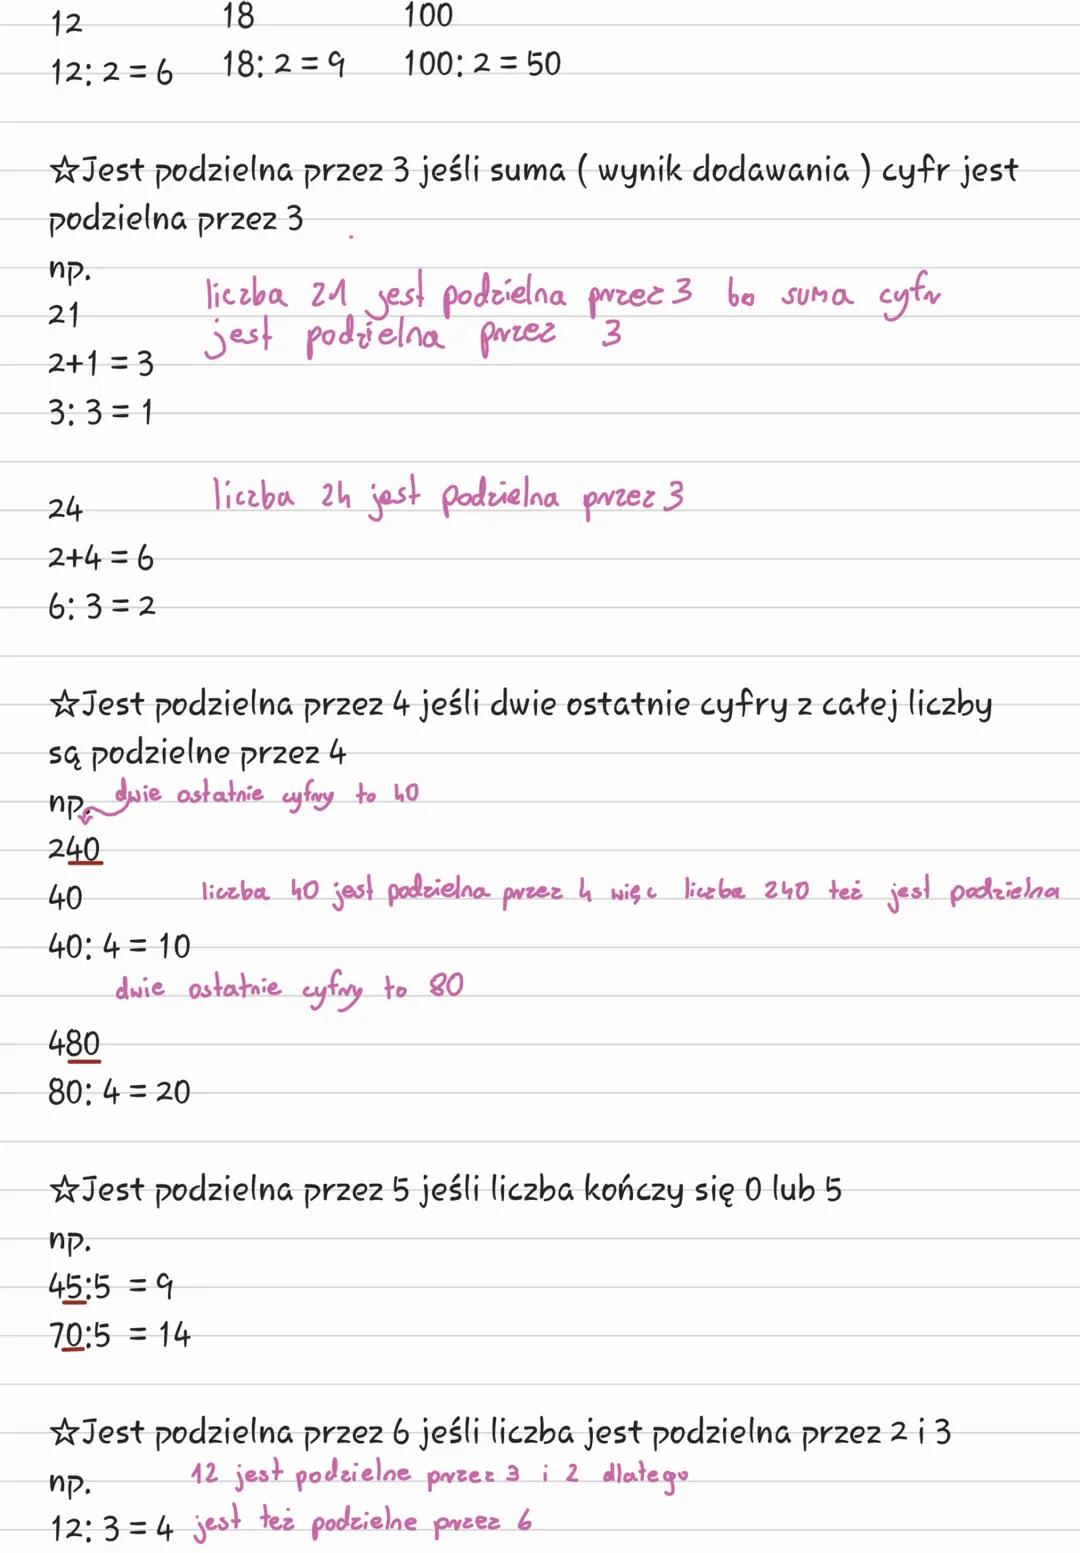 12 18 100
12: 2 = 6 18: 2 = 9 100: 2 = 50
☆Jest podzielna przez 3 jeśli suma ( wynik dodawania ) cyfr jest
podzielna przez 3
np.
liczba 21 jest podzielna przez 3 bo suma cyfr
21
jest podzielna przez 3
2+1 = 3
3: 3 = 1
24 liczba 24 jest podzielna przez 3
2+4 = 6
6: 3 = 2
☆Jest podzielna przez 4 jeśli dwie ostatnie cyfry z całej liczby
są podzielne przez 4
np. dwie ostatnie cyfry to 40
240
40 liczba 40 jest podzielna przez 4 więc liczba 240 też jest podzielna
40: 4 = 10
dwie ostatnie cyfry to 80
480
80: 4 = 20
☆Jest podzielna przez 5 jeśli liczba kończy się 0 lub 5
np.
45:5 = 9
70:5 = 14
☆Jest podzielna przez 6 jeśli liczba jest podzielna przez 2 i 3
np. 12 jest podzielne przez 3 i 2 dlatego
12: 3 = 4 jest też podzielne przez 6